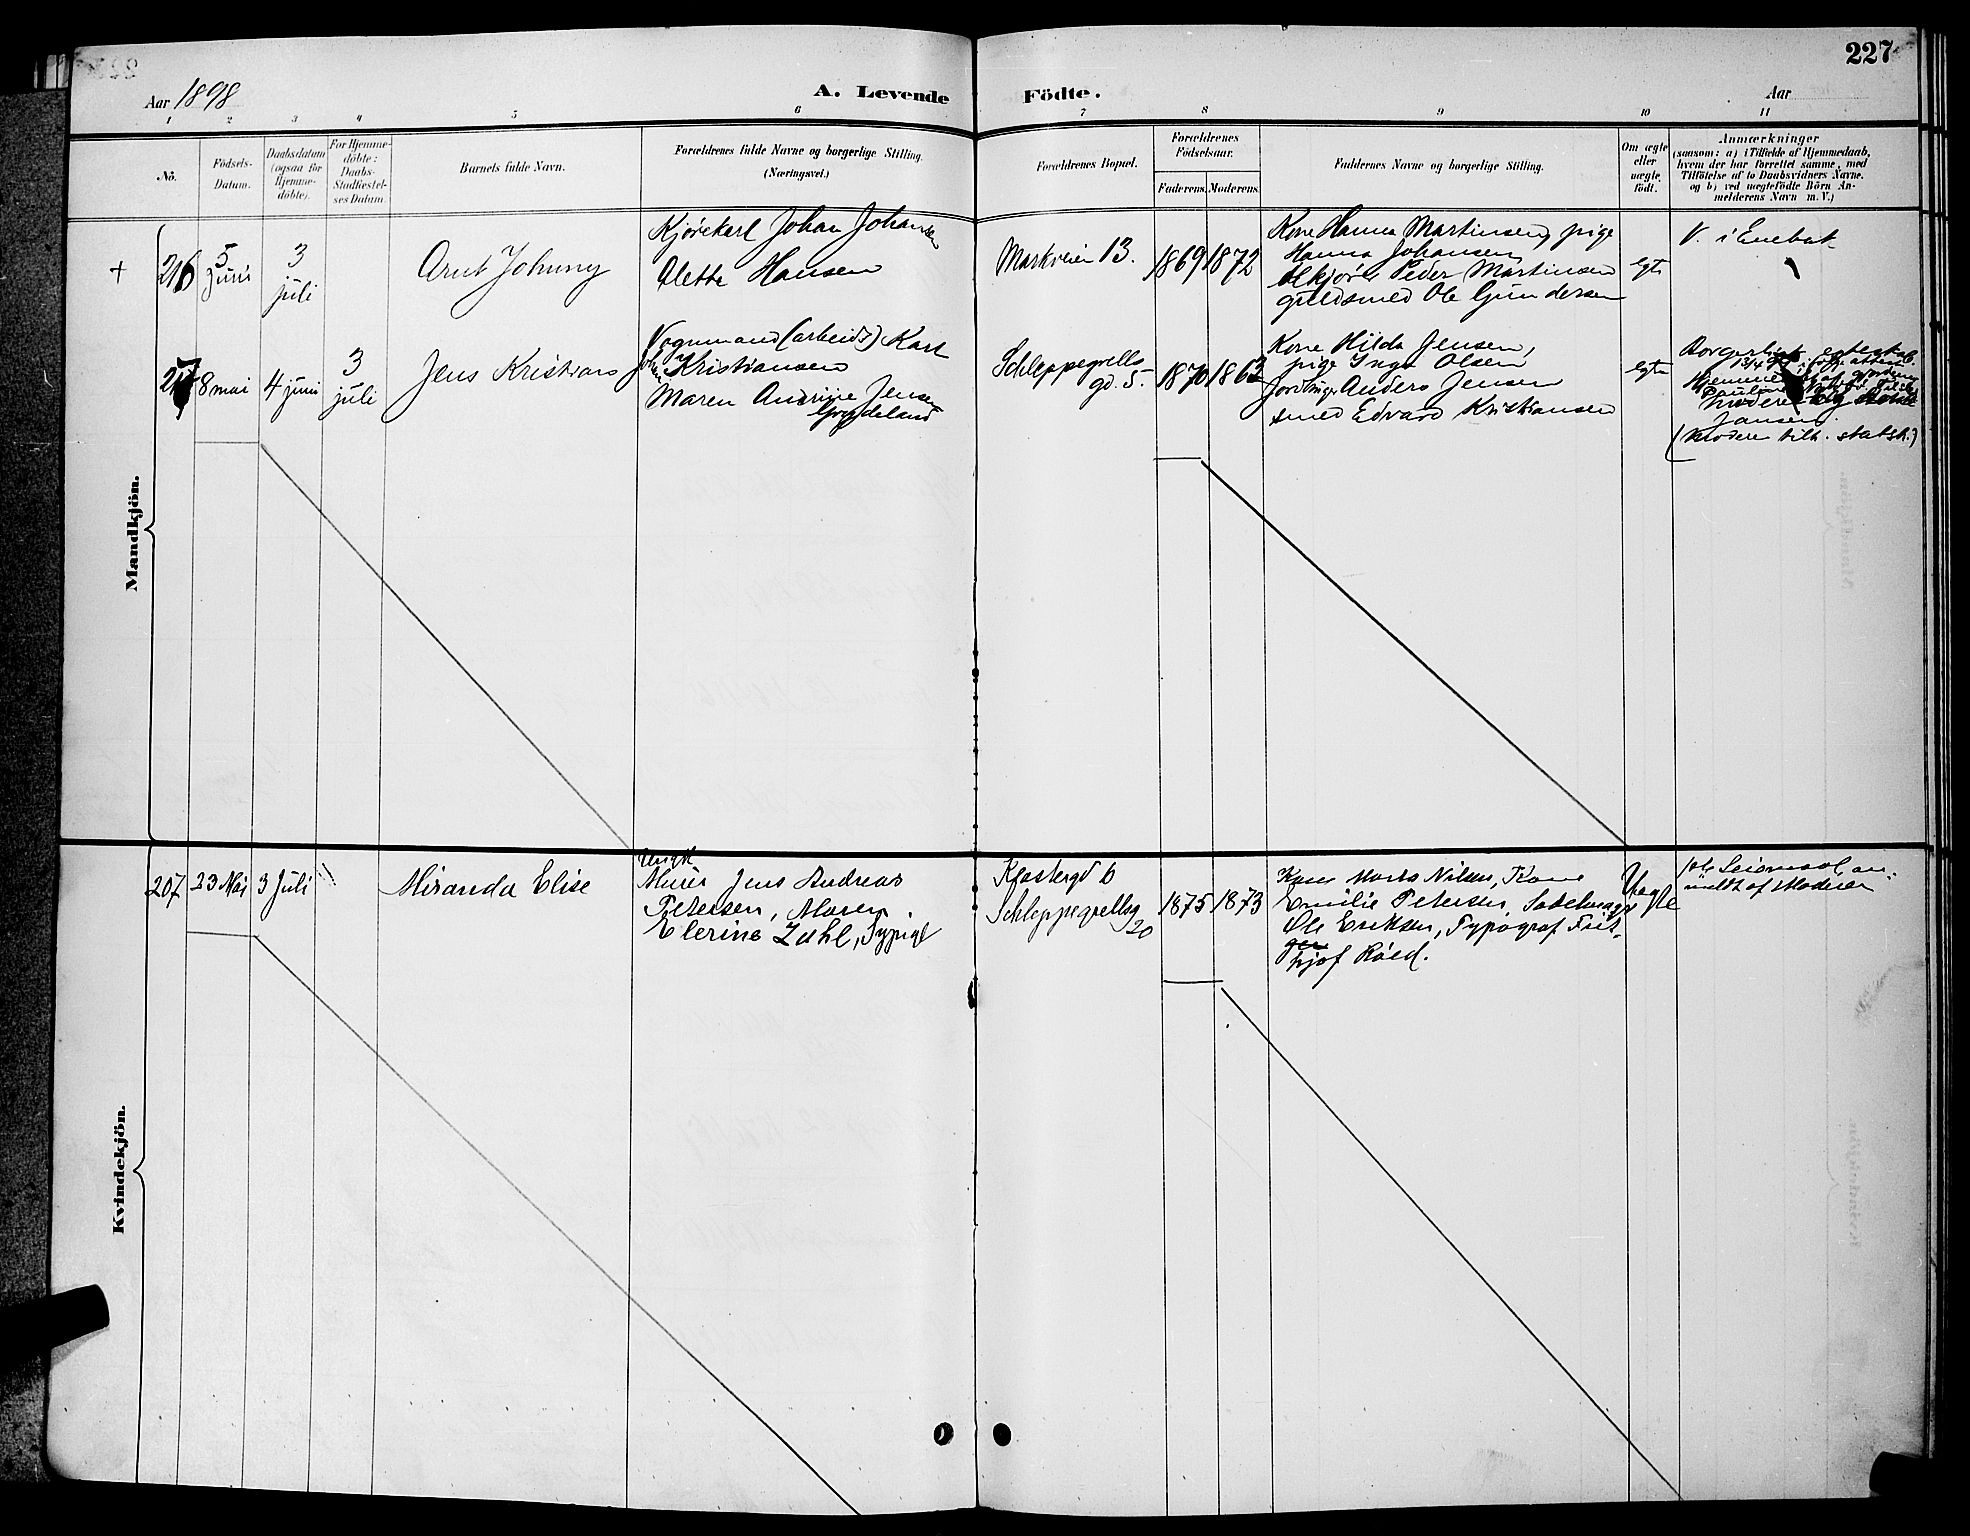 227
Aar 1898
A. Levende Födte.
Aar
1 2 3 4 5 6 7 8 9 10 11
No.
Födsels-
Datum.
Daabsdatum
(ogsaa for
Hjemme-
döbte).
For Hjemme-
döbte:
Daabs-
Stadfæstel-
ses Datum.
Barnets fulde Navn.
Forældrenes fulde Navne og borgerlige Stilling.
(Næringsvei.)
Forældrenes Bopæl.
Forældrenes
Födselsaar.
Faderens. Moderens.
Faddernes Navne og borgerlige Stilling.
Om ægte
eller
uægte
födt.
Anmærkninger
(saasom: a) i Tilfælde af Hjemmedaab,
hvem der har forrettet samme, med
Tilföielse af to Daabsvidners Navne.
og b) ved uægtefödte Börn An-
melderens Navn m. V.)
Mandkjön.
+ 216
5
juni
3
juli
Arnt Johnny
Kjørekarl Johan Johansen
Alette Hansen
Markveien 13.
1869 1872
Kone Hanna Martinsen, pige
Hanna Johansen
Peder Martinsen
guldsmed Ole Gundersen
egte
V. i Enebak
217
8 mai
4 juni
3
juli
Jens Kristian
Vognmand (arbeids) Karl
Joh. Kristiansen
Maren Andrine Jensen
Schleppegrells
gd. 5.
1870 1863
Kone Hilda Jensen,
pige Inga Olsen,
Anders Jensen
smed Edvard Kristiansen
egte
Borgerligt egteskab
13/4
Jansen.
(Modere tilh. statsk.)
Kvindekjön.
207
23 Mai
3 Juli
"
Miranda Elise
Ungk
Murer Jens Andreas
Petersen, Maren
Elerine Zuhl, Sypige
6
Schleppegrellsg
20
1875 1873
Nilsen, Kone
Emilie Petersen,
Ole Eriksen, Typograf Frit-
hjof Röed.
Uegte
an-
meldt af Moderen